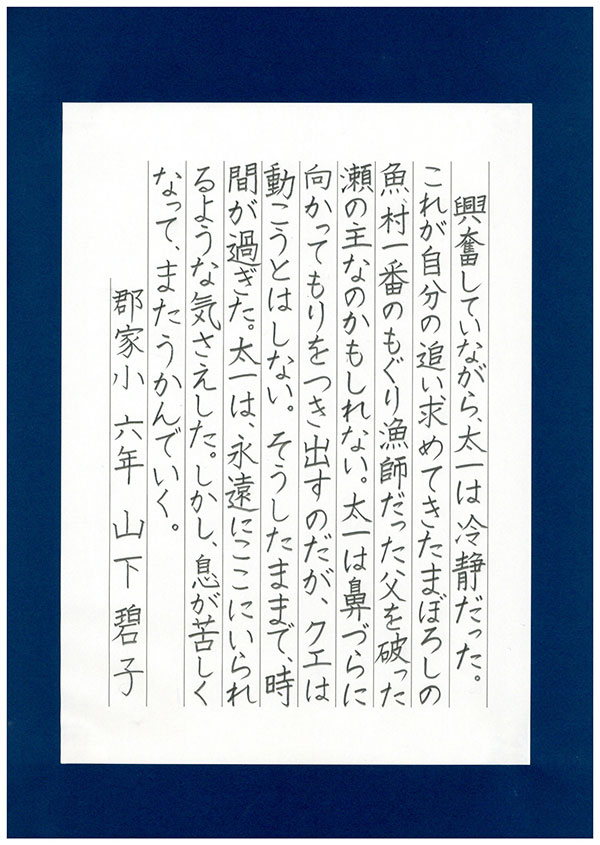 興奮していながら、太一は冷静だった。
これが自分の追い求めてきたまぼろしの
魚、村一番のもぐり漁師だった父を破った
瀬の主なのかもしれない。太一は鼻づらに
向かってもりをつき出すのだが、クエは
動こうとはしない。そうしたままで、時
間が過ぎた。太一は、永遠にここにいられ
るような気さえした。しかし、息が苦しく
なって、またうかんでいく。
郡家小 六年 山下碧子